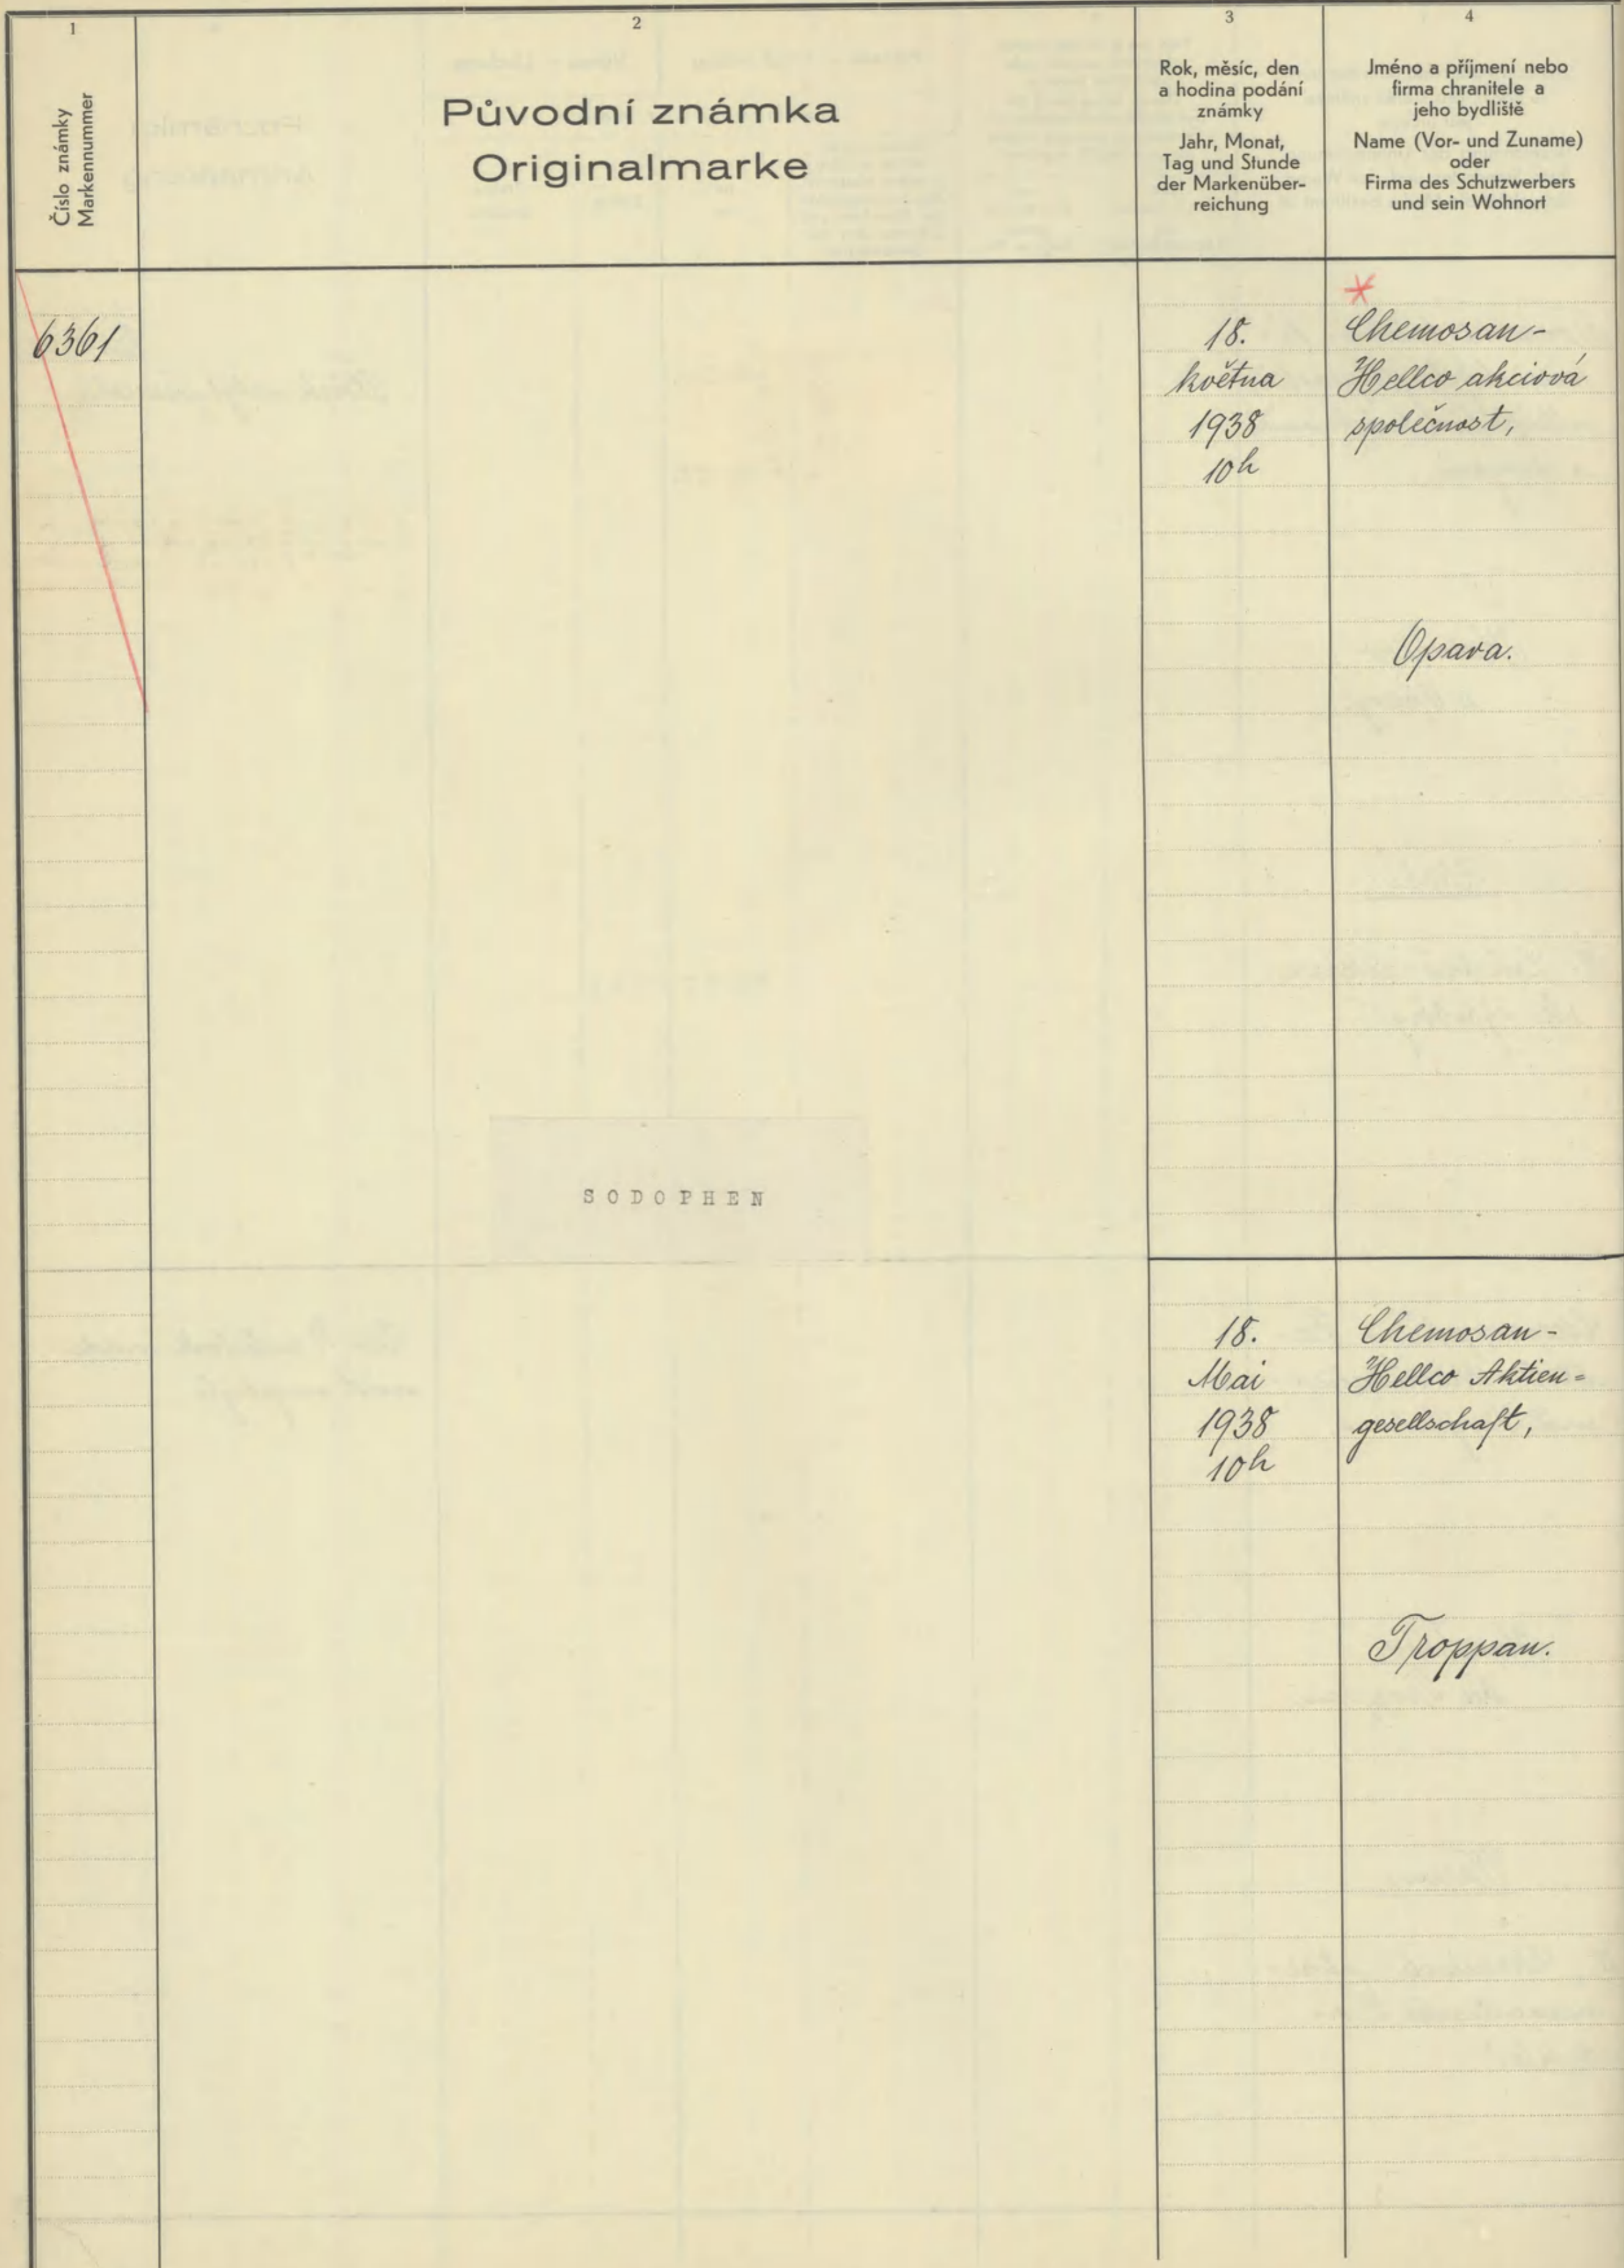 1
Číslo známky
Markennummer
2
Původní známka
Originalmarke
3
Rok, měsíc, den
a hodina podání
známky
Jahr, Monat,
Tag und Stunde
der Markenüber-
reichung
4
Jméno a příjmení nebo
firma chranitele a
jeho bydliště
Name (Vor- und Zuname)
oder
Firma des Schutzwerbers
und sein Wohnort
6361
18.
května
1938
10h
Chemosan-
Hellco akciová
společnost,
Opava.
SODOPHEN
18.
Mai
1938
10h
Chemosan-
Hellco Aktien=
gesellschaft,
Troppau.